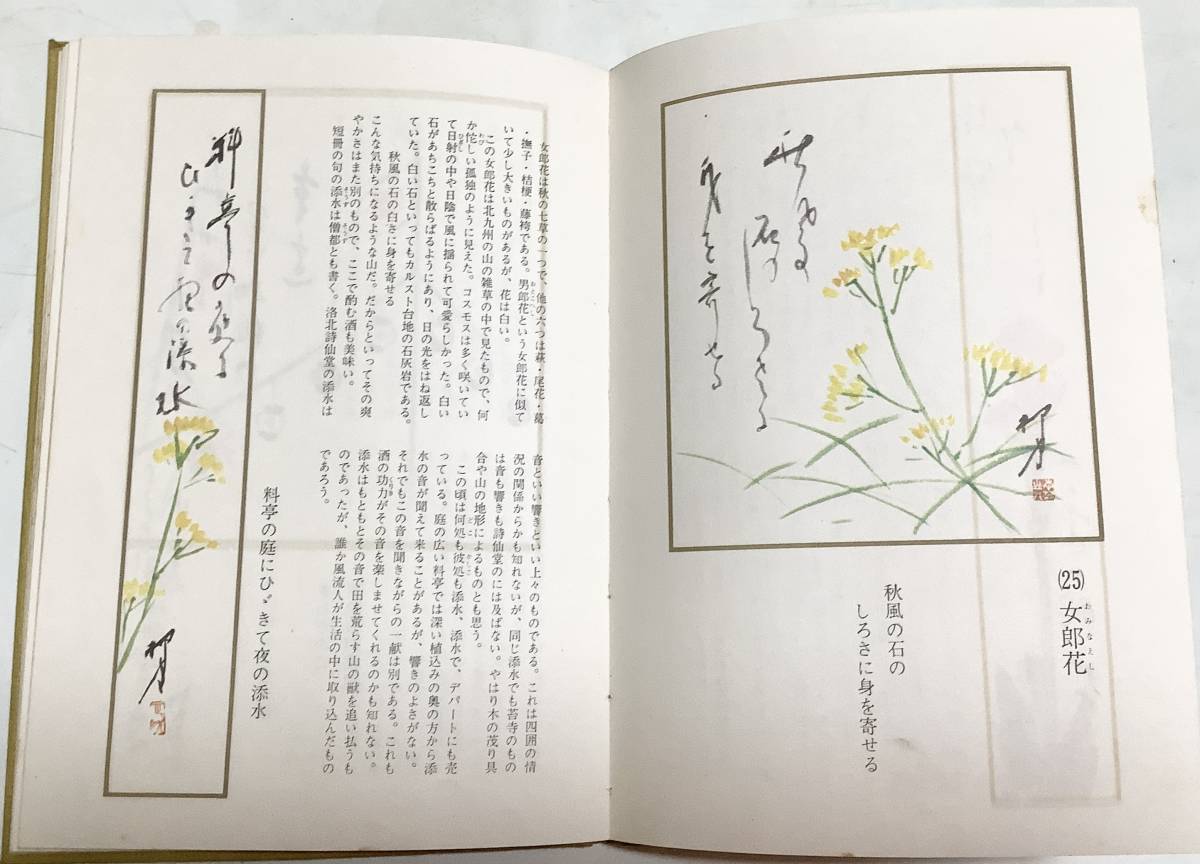 秋風の
石の
しろさに
身を寄せる
(25) 女郎花
おみなえし
秋風の石の
しろさに身を寄せる
女郎花は秋の七草の一つで、他の六つは萩・尾花・葛
・撫子・桔梗・藤袴である。男郎花という女郎花に似て
いて少し大きいものがあるが、花は白い。
この女郎花は北九州の山の雑草の中で見たもので、何
か佗しい孤独のように見えた。コスモスは多く咲いてい
て日射の中や日陰で風に揺られて可愛らしかった。白い
石があちこちと散らばるようにあり、日の光をはね返し
ていた。白い石といってもカルスト台地の石灰岩である。
秋風の石の白さに身を寄せる
こんな気持ちになるような山だ。だからといってその爽
やかさはまた別のもので、ここで酌む酒も美味い。
短冊の句の添水は僧都とも書く。洛北詩仙堂の添水は
音といい響きといい上々のものである。これは四囲の情
況の関係からかも知れないが、同じ添水でも苔寺のもの
は音も響きも詩仙堂のには及ばない。やはり木の茂り具
合や山の地形によるものとも思う。
この頃は何処も彼処も添水、添水で、デパートにも売
っている。庭の広い料亭では深い植込みの奥の方から添
水の音が聞えて来ることがあるが、響きのよさがない。
それでもこの音を聞きながらの一献は別である。これも
酒の功力がその音を楽しませてくれるのかも知れない。
添水はもともとその音で田を荒らす山の獣を追い払うも
のであったが、誰か風流人が生活の中に取り込んだもの
であろう。
料亭の庭にひゞきて夜の添水
料亭の庭に
ひゞきて夜の添水